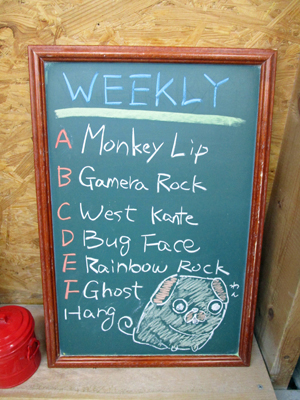 WEEKLY
A Monkey Lip
B Gamera Rock
C West Kante
D Bug Face
E Rainbow Rock
F Ghost
Hang
わん